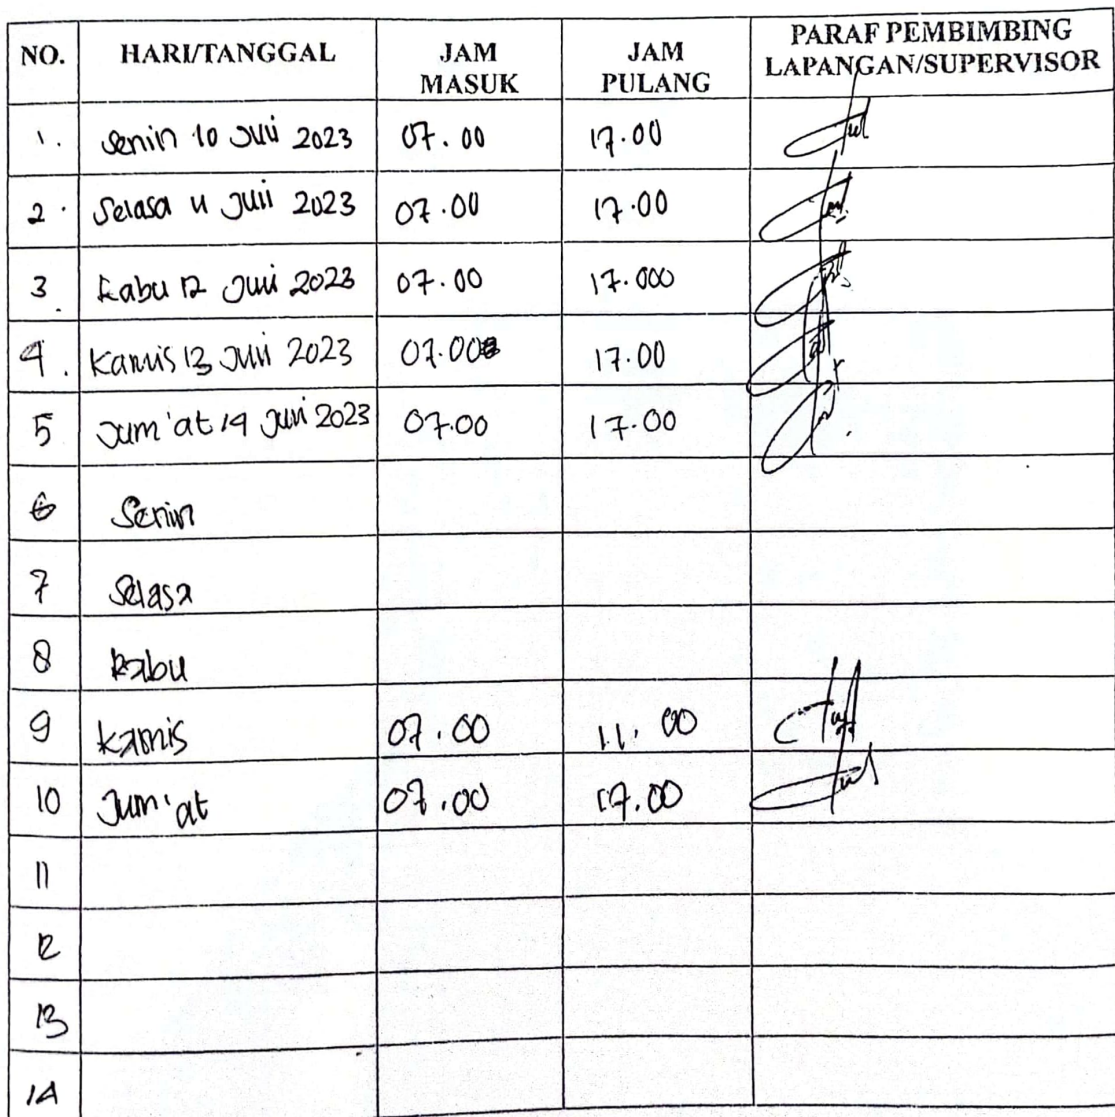 NO. HARI/TANGGAL JAM MASUK JAM PULANG PARAF PEMBIMBING LAPANGAN/SUPERVISOR
1. Senin 10 Juli 2023 07.00 17.00
2. Selasa 11 Juli 2023 07.00 17.00
3 Rabu 12 Juli 2023 07.00 17.000
4. Kamis 13 Juli 2023 07.00 17.00
5 Jum'at 14 Juli 2023 07.00 17.00
6 Senin
7 Selasa
8 Rabu
9 Kamis 07.00 11.00
10 Jum'at 07.00 17.00
11
12
13
14